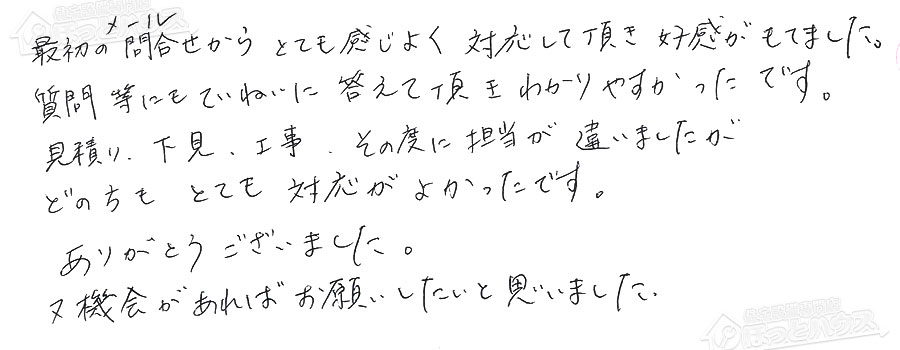 最初のメール問合せからとても感じよく対応して頂き好感がもてました。
質問等にもていねいに答えて頂きわかりやすかったです。
見積り、下見、工事、その度に担当が違いましたが
どのちもとても対応がよかったです。
ありがとうございました。
又機会があればお願いしたいと思いました。
ほっとハウス